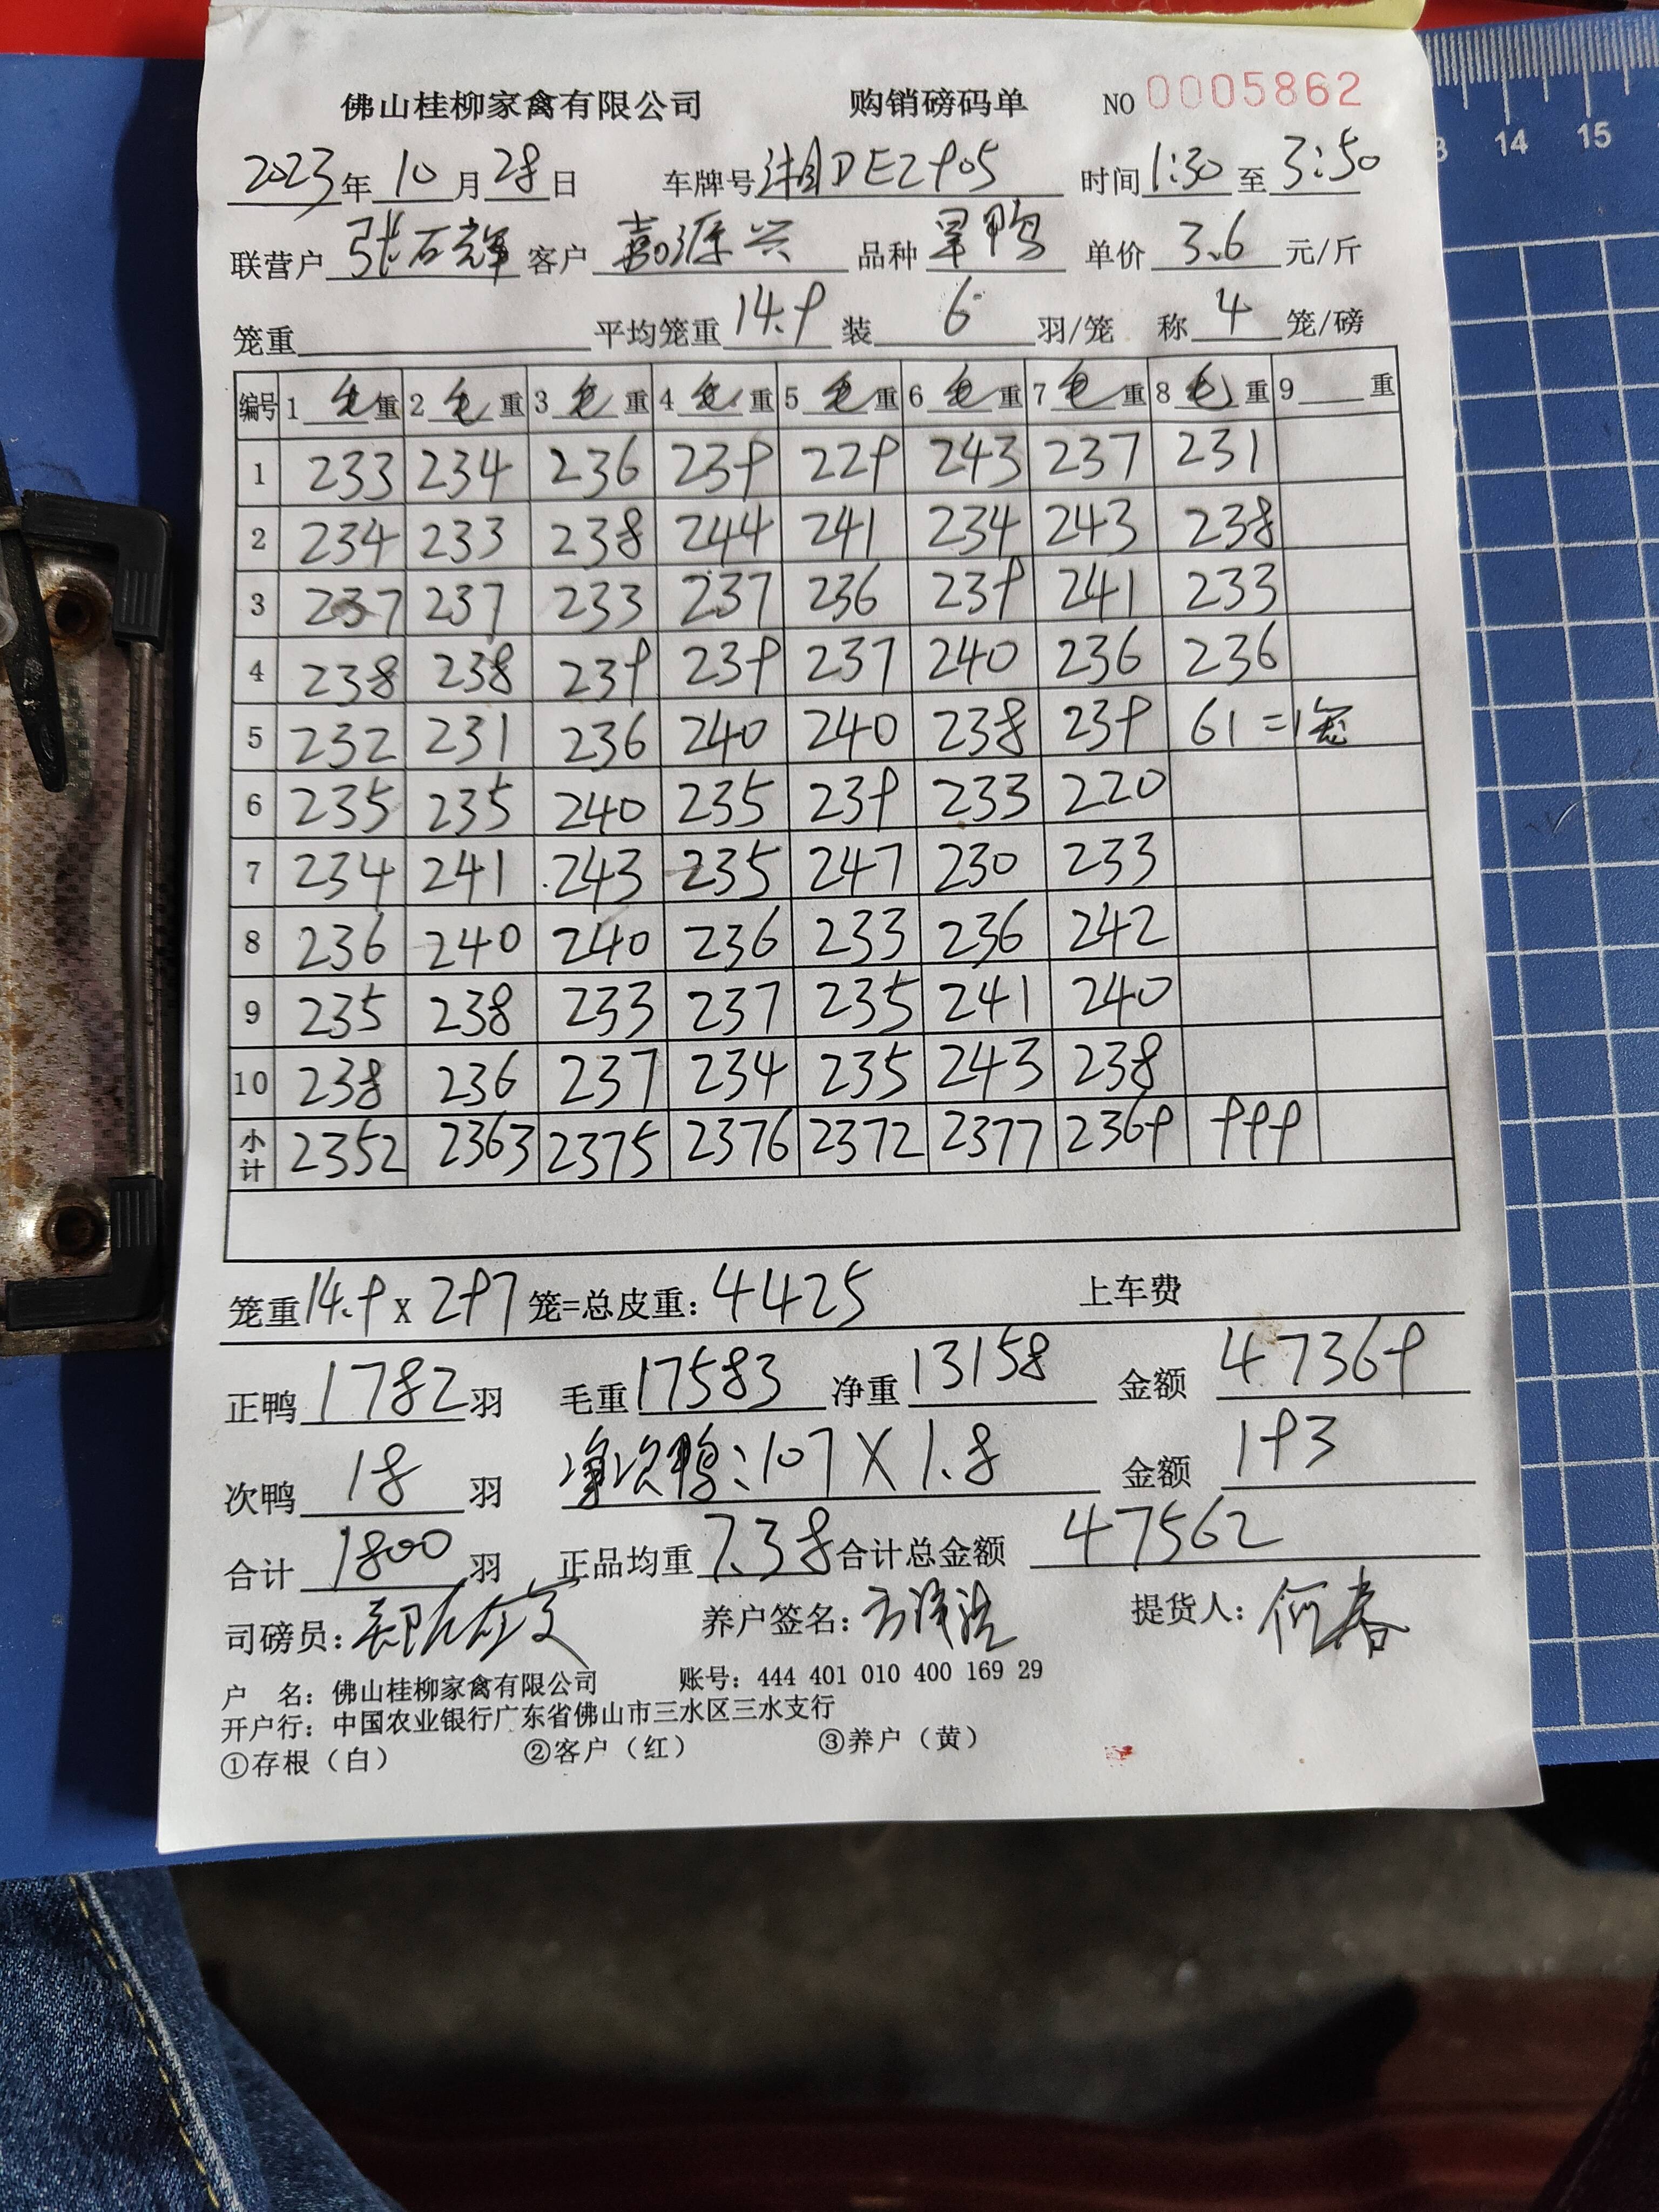 佛山桂柳家禽有限公司 购销磅码单 NO 0005862
2023年10月28日 车牌号 湘DE2905 时间 1:30 至 3:50
联营户 张石辉 客户 嘉源兴 品种 旱鸭 单价 3.6 元/斤
笼重 平均笼重 14.9 装 6 羽/笼 称 4 笼/磅
编号 1 毛重 2 毛重 3 毛重 4 毛重 5 毛重 6 毛重 7 毛重 8 毛重 9 重
1 233 234 236 239 229 243 237 231
2 234 233 238 244 241 234 243 238
3 237 237 233 237 236 239 241 233
4 238 238 239 239 237 240 236 236
5 232 231 236 240 240 238 239 61=1笼
6 235 235 240 235 239 233 220
7 234 241 243 235 247 230 233
8 236 240 240 236 233 236 242
9 235 238 233 237 235 241 240
10 238 236 237 234 235 243 238
小计 2352 2363 2375 2376 2372 2377 2369 999
笼重 14.9 x 297 笼=总皮重: 4425 上车费
正鸭 1782 羽 毛重 17583 净重 13158 金额 47369
次鸭 18 羽 净次鸭:107 X 1.8 金额 193
合计 1800 羽 正品均重 7.38 合计总金额 47562
司磅员: 养户签名: 提货人: 何春
户 名: 佛山桂柳家禽有限公司 账号: 444 401 010 400 169 29
开户行: 中国农业银行广东省佛山市三水区三水支行
①存根(白) ②客户(红) ③养户(黄)
13 14 15